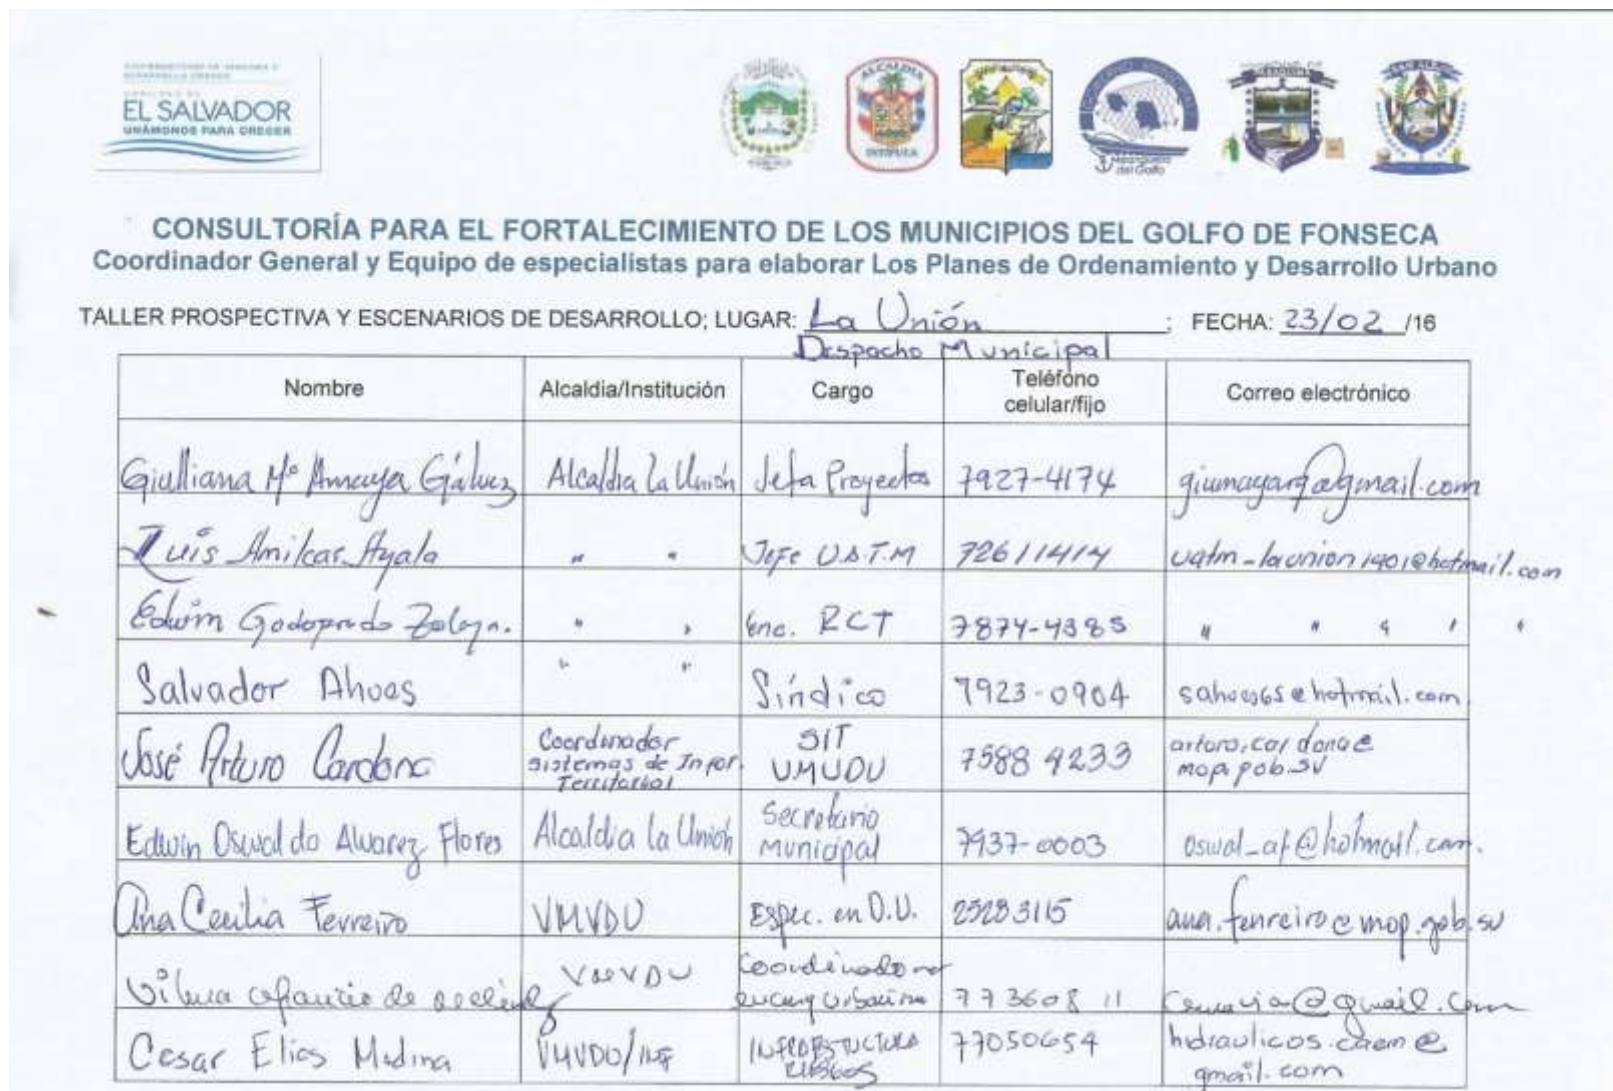 EL SALVADOR
UNÁMONOS PARA CRECER
ALCALDIA
INTIPUCA
Meanguera
del Golfo
CONSULTORÍA PARA EL FORTALECIMIENTO DE LOS MUNICIPIOS DEL GOLFO DE FONSECA
Coordinador General y Equipo de especialistas para elaborar Los Planes de Ordenamiento y Desarrollo Urbano
TALLER PROSPECTIVA Y ESCENARIOS DE DESARROLLO; LUGAR: La Unión ; FECHA: 23/02 /16
Despacho Municipal
Nombre Alcaldia/Institución Cargo Teléfono celular/fijo Correo electrónico
Giulliana Mª Amaya Gálvez Alcaldia La Unión Jefa Proyectos 7927-4174 giumayarg@gmail.com
Luis Amilcar Ayala " " Jefe U.A.T.M 72611414 uatm-launion1401@hotmail.com
Edwin " " Enc. RCT 7874-4385 " " " " "
Salvador Ahues " " Síndico 7923-0904 sahues65@hotmail.com
José Arturo Cardona Coordinador Sistemas de Infor. Territorial SIT VMVDU 7588 4233 arturo.cardona@mop.gob.sv
Edwin Oswaldo Alvarez Flores Alcaldia La Unión Secretario Municipal 7937-0003 oswal_af@hotmail.com.
Ana Cecilia Ferreiro VMVDU Espec. en D.U. 25283115 ana.ferreiro@mop.gob.sv
Vilma de VMVDU 77360811 @gmail.com
Cesar Elias Medina VMVDU/INF INFRAESTRUCTURA RIESGOS 77050654 hidraulicos.caem@gmail.com